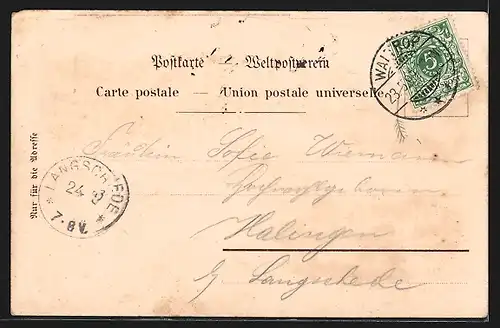 Postkarte — Weltpostverein
Carte postale — Union postale universelle
WALTROP
23
5
Nur für die Adresse
Fräulein Sofie Wiemann
Hochwohlgeboren
Halingen
b/ Langschede
LANGSCHEDE
24
7-8V.